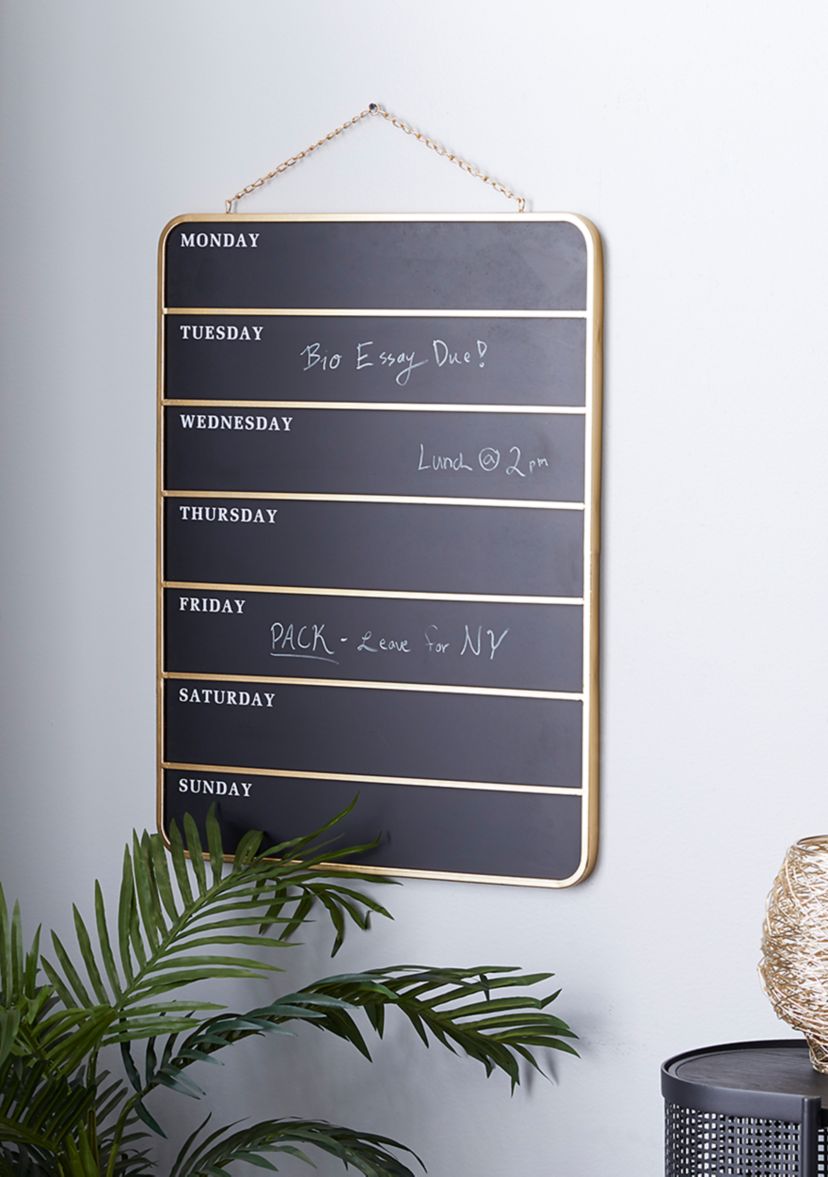 MONDAY
TUESDAY
Bio Essay Due!
WEDNESDAY
Lunch @ 2pm
THURSDAY
FRIDAY
PACK - Leave for NY
SATURDAY
SUNDAY